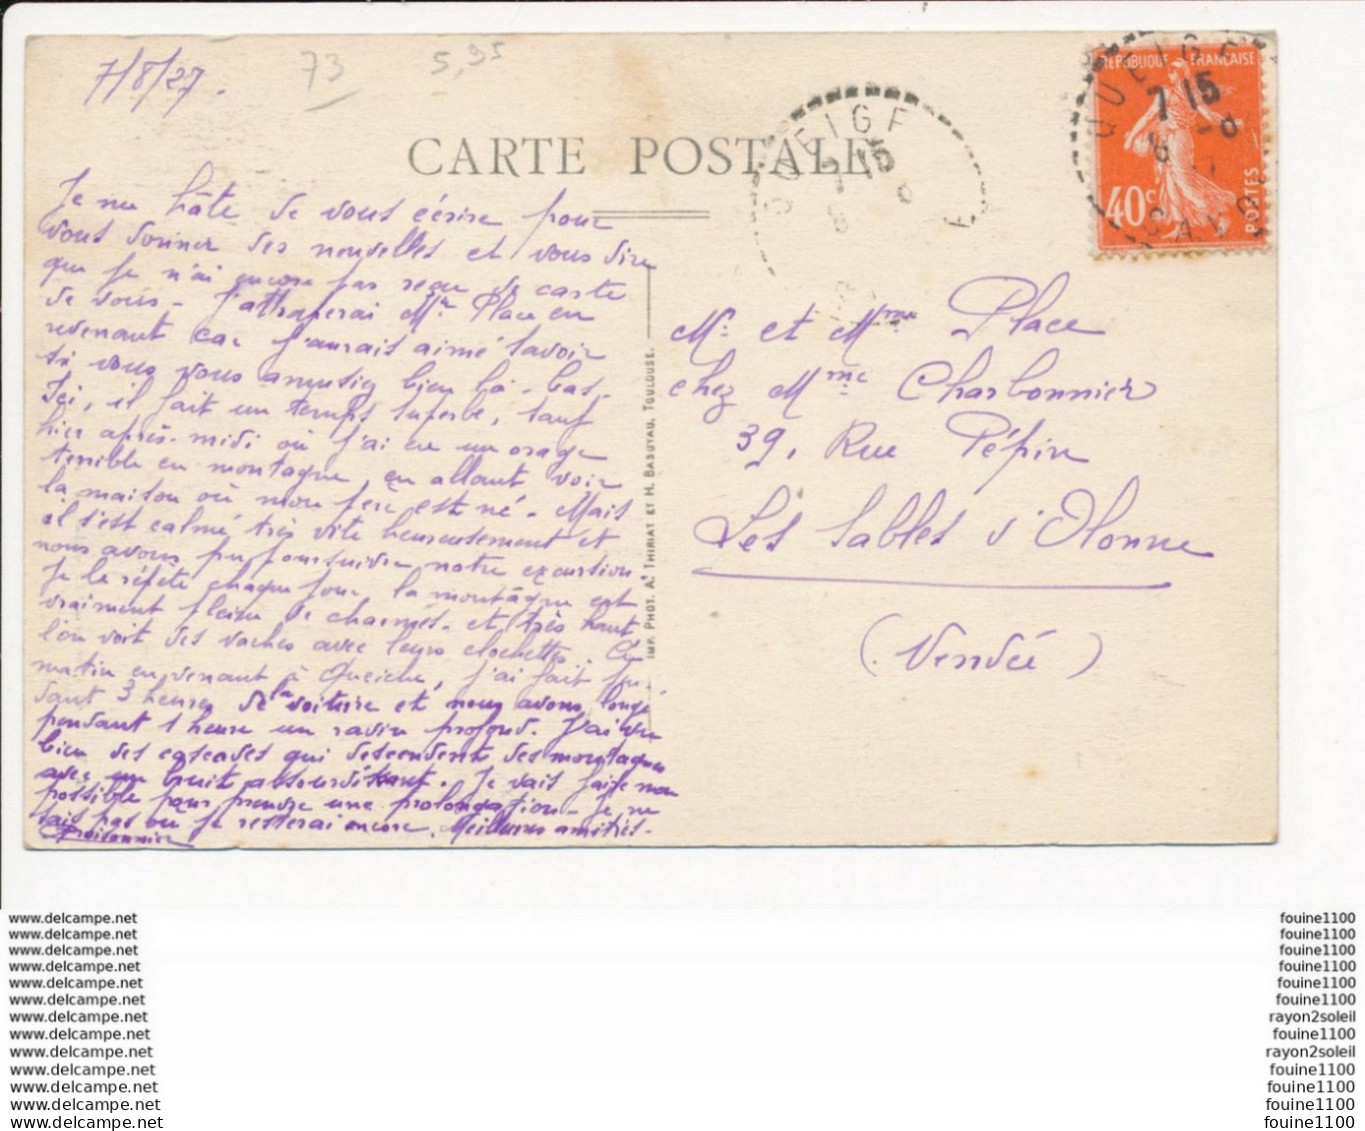 7/8/27.
73
5,95
CARTE POSTALE
QUEIGE
7 15
8
QUEIGE
7 15
8
SAVOIE
RÉPUBLIQUE FRANÇAISE
40c
POSTES
Je me hâte de vous écrire pour
vous donner des nouvelles et vous dire
que je n'ai encore pas reçu de carte
de vous - J'attraperai Mr Place en
revenant car j'aurais aimé savoir
si vous vous amusiez bien là-bas -
Ici, il fait un temps superbe, sauf
hier après-midi où j'ai eu un orage
terrible en montagne, en allant voir
la maison où mon père est né - Mais
il s'est calmé très vite heureusement et
nous avons pu poursuivre notre excursion.
Je le répète chaque jour, la montagne est
vraiment pleine de charmes - et très haut
l'on voit des vaches avec leurs clochettes. Ce
matin en venant à Queige, j'ai fait pen-
dant 3 heures de la voiture et nous avons longé
pendant 1 heure un ravin profond. J'ai vu
bien des cascades qui descendent des montagnes
avec un bruit abasourdissant. Je vais faire mon
possible pour prendre une prolongation - Je ne
sais pas où je resterai encore. Meilleures amitiés -
IMP. PHOT. A. THIRIAT ET H. BASUYAU, TOULOUSE.
Mr et Mme Place
chez Mme Charbonnier
39, Rue Pépin
Les Sables d'Olonne
(Vendée)
www.delcampe.net
www.delcampe.net
www.delcampe.net
www.delcampe.net
www.delcampe.net
www.delcampe.net
www.delcampe.net
www.delcampe.net
www.delcampe.net
www.delcampe.net
www.delcampe.net
www.delcampe.net
www.delcampe.net
fouine1100
fouine1100
fouine1100
fouine1100
fouine1100
fouine1100
rayon2soleil
fouine1100
rayon2soleil
fouine1100
fouine1100
fouine1100
fouine1100